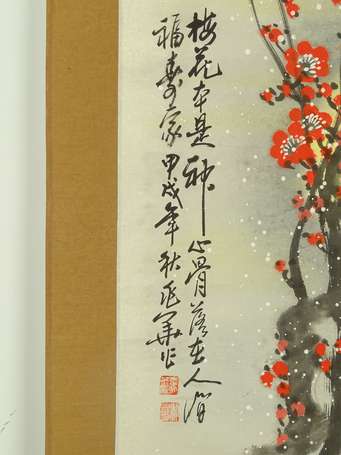 梅花本是神心骨落在人间
福寿家甲戌年秋
作